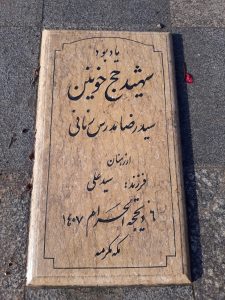 یادبود
شهید حج خونین
سید رضا مدرس
از:
فرزند: سید علی
۶ ذیحجه الحرام ۱۴۰۷
مکه مکرمه